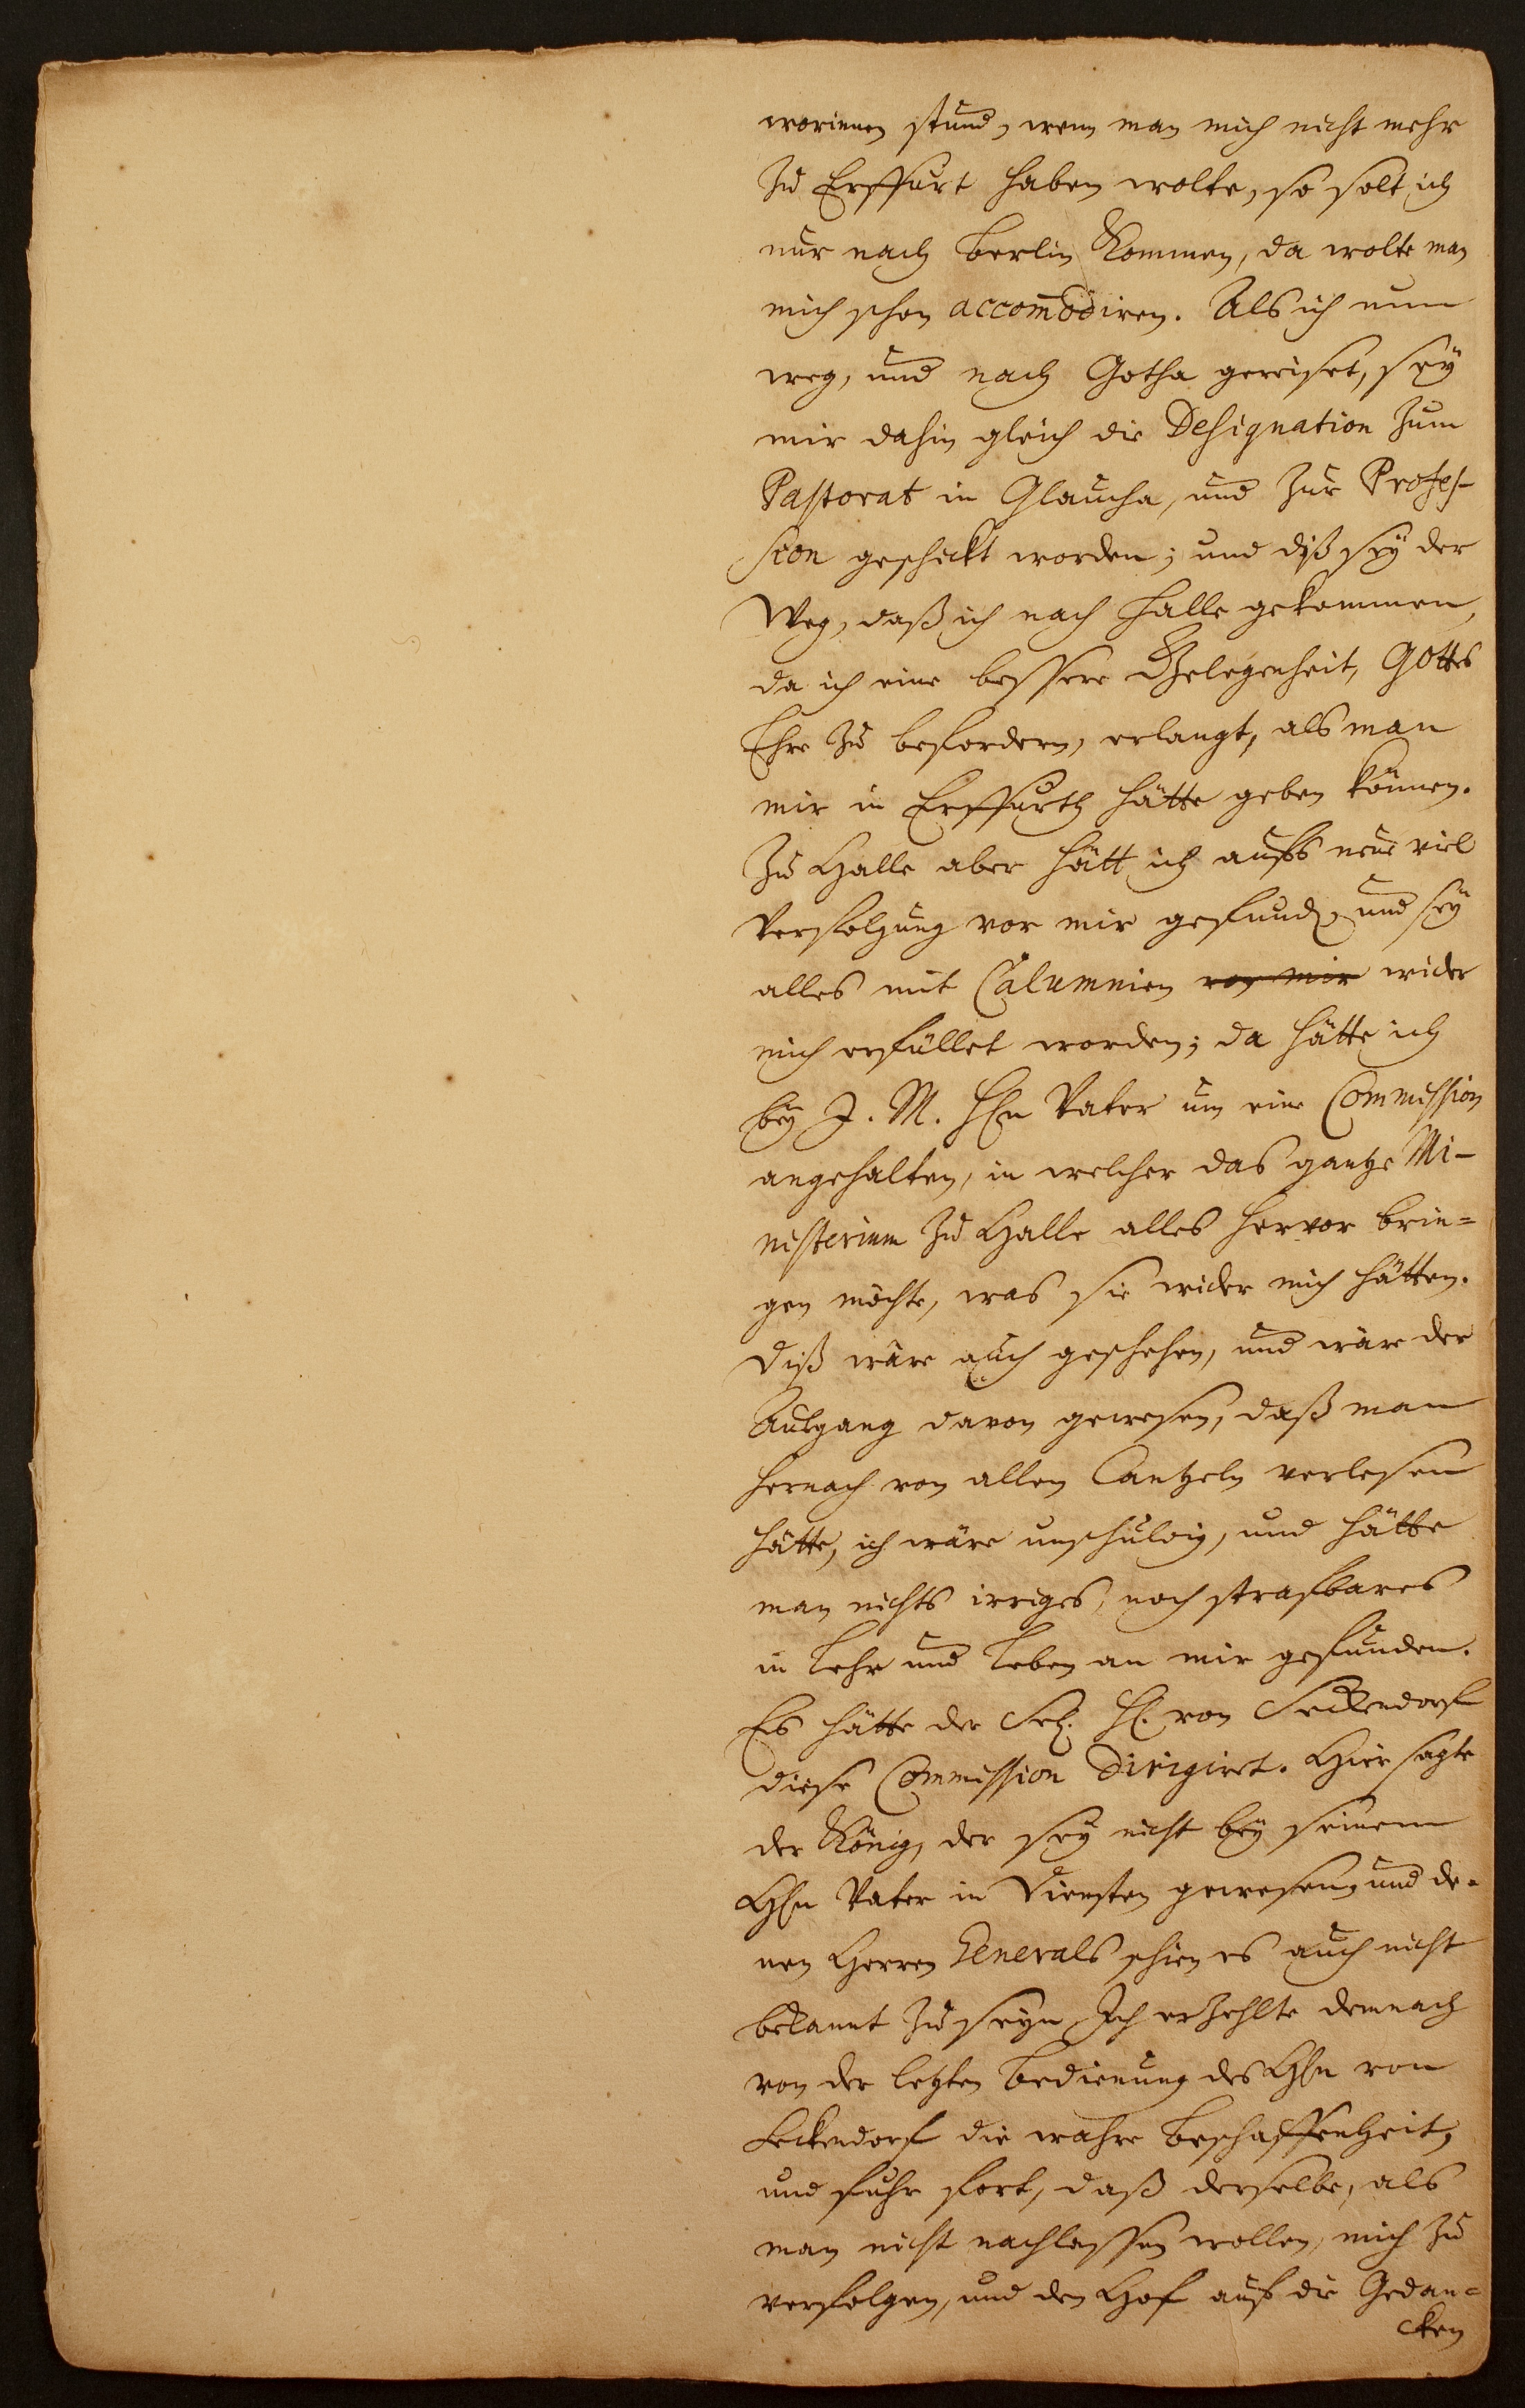 worinnen stund, wenn man mich nicht mehr
zu Erffurt haben wolte, so solt ich
nur nach Berlin Kommen, da wolte man
mich schon accom̄odiren. Als ich nun
weg, und nach Gotha gereiset, seÿ
mir dahin gleich die Designation zum
Pastorat in Glaucha, und zur Profes-
sion geschickt worden; und diß seÿ der
Weg, daß ich nach Halle gekommen,
da ich eine bessere Gelegenheit, GOttes
Ehre zu befordern, erlangt, als man
mir in Erffurth hätte geben können.
Zu Halle aber hätt ich aufs neue viel
Verfolgung vor mir gefund, und seÿ
alles mit Calumnien von mir wider
mich erfüllet worden; da hätte ich
beÿ J. M. HEn Vater um eine Commission
angehalten, in welcher das gantze Mi-
nisterium zu Halle alles hervor brin=
gen möchte, was sie wider mich hätten.
Diß wäre auch geschehen, und wäre der
Außgang davon gewesen, daß man
hernach von allen Cantzeln verlesen
hätte, ich wäre unschuldig, und hätte
man nichts irriges, noch strafbares
in Lehr und Leben an mir gefunden.
Es hätte der Sel. H. von Seckendorf
diese Commission dirigiret. Hier sagte
der König, der seÿ nicht beÿ seinem
HEn Vater in Diensten gewesen, und de=
nen Herren Generals schien es auch nicht
bekannt zu seyn. Ich erzehlte demnach
von der letzten Bedienung des HEn von
Seckendorf die wahre Beschaffenheit,
und fuhr fort, daß derselbe, als
man nicht nachlassen wollen, mich zu
verfolgen, und den Hof auf die Gedan=
cken